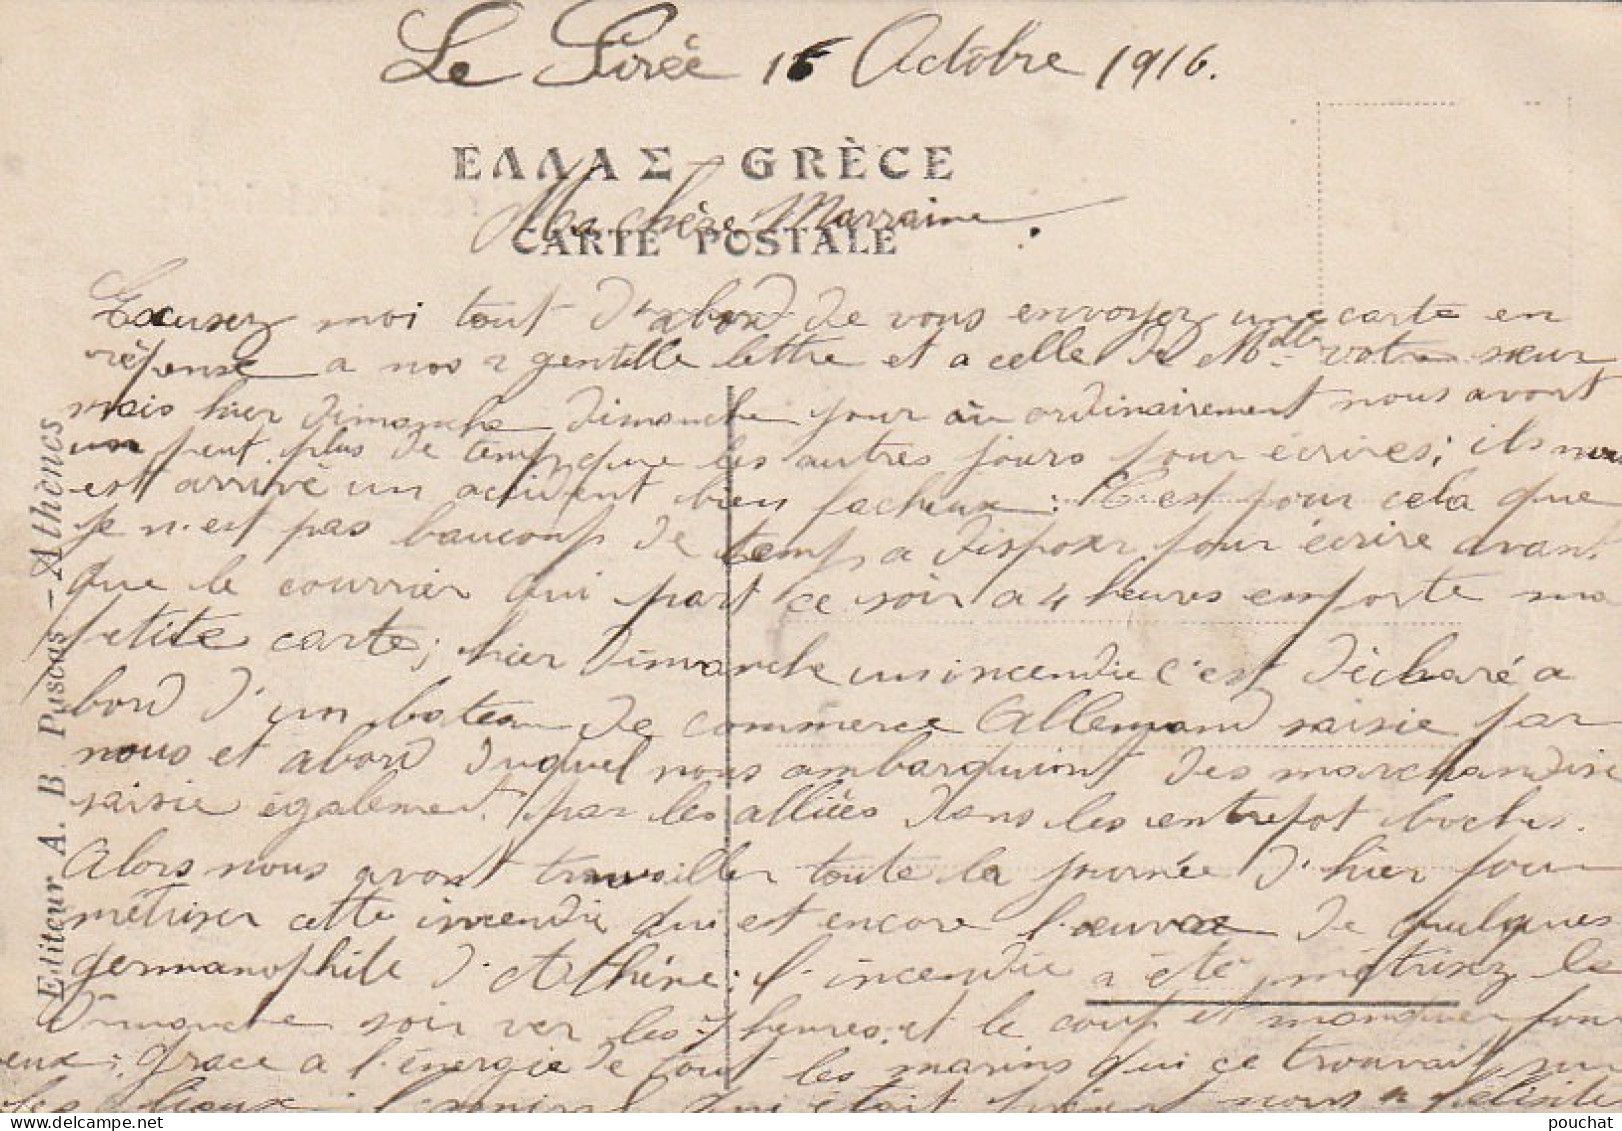 Le Pirée 16 Octobre 1916.
ΕΛΛΑΣ GRÈCE
Ma chère Marraine.
CARTE POSTALE
Excusez moi tout d'abord de vous envoyez une carte en
réponse a gentille lettre et a celle de Mdlle votre sœur
mais hier dimanche dimanche jour où ordinairement nous avont
un peut plus de temps que les autres jours pour écrires; ils nous
est arrivé un accident bien facheux: C'est pour cela que
je n'est pas beaucoup de temp a disposer pour écrire avant
que le courrier qui part ce soir a 4 heures emporte ma
petite carte; hier dimanche un incendie c'est déclaré a
bord d'un bateau de commerce Allemand saisie par
nous et abord duquel nous ambarquiont des marchandise
saisie également par les alliées dans les entrepot boches.
Alors nous avont travailler toute la journée d'hier pour
métriser cette incendie qui est encore l'œuvre de quelques
germanophile d'Athène: l'incendie a été métrisez le
Dimanche soir ver les 7 heures et le coup et manquer pour
eux; grace a l'énergie de tout les marins qui ce trouvait sur
les lieux; l'amiral qui était présent nous a félicite
Editeur A. B Pascas - Athènes
pouchat